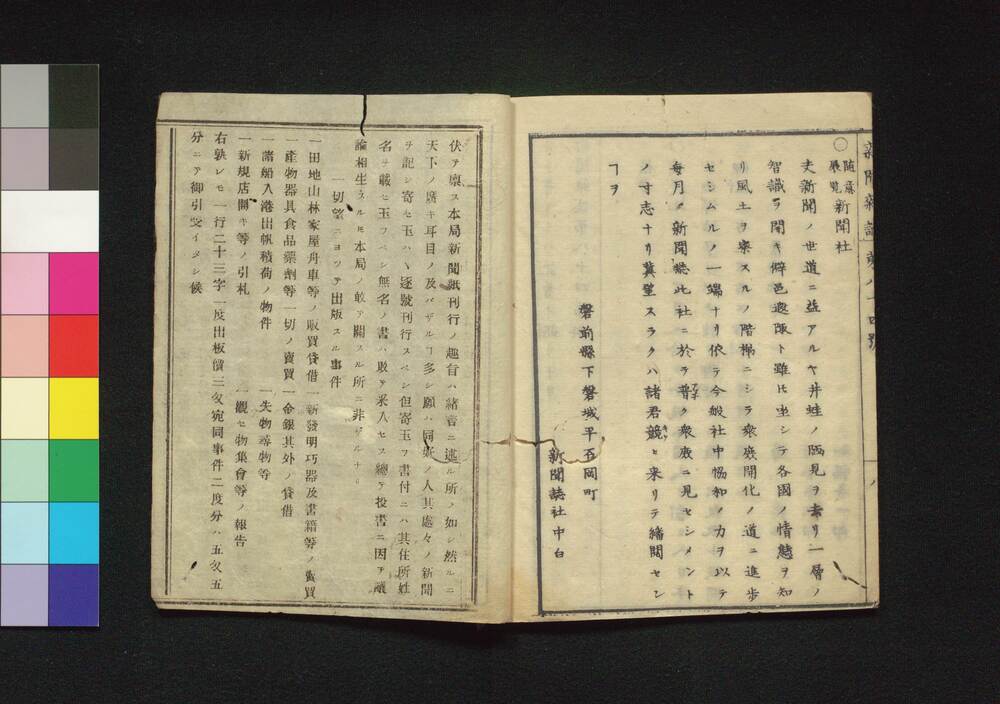 新聞雜誌 第八十四號
〇隨意展覽新聞社
夫新聞ノ世道ニ益アルヤ井蛙ノ陋見ヲ去リ一層ノ
智識ヲ開キ僻邑遐陬ト雖𪜈坐シテ各國ノ情態ヲ知
リ風土ヲ察スルノ階梯ニシテ衆庶開化ノ道ニ進歩
セシムルノ一端ナリ依テ今般社中協和ノ力ヲ以テ
每月ノ新聞紙此社ニ於テ普ク衆庶ニ見セシメント
ノ寸志ナリ冀望スラクハ諸君競ヒ来リテ繙閲セン
ヿヲ
磐前縣下磐城平五岡町
新聞誌社中白
伏テ禀ス本局新聞紙刊行ノ趣旨ハ緒言ニ述ル所ノ如シ然ルニ
天下ノ廣キ耳目ノ及バザルヿ多シ願ハ同好ノ人其處々ノ新聞
ヲ記シ寄セ玉ハヽ逐號刊行スベシ但寄玉フ書付ニハ其住所姓
名ヲ載セ玉フベシ無名ノ書ハ敢テ采入セス總テ投書ニ因テ議
論相生スルモ本局ノ敢テ關スル所ニ非ザルナリ
一切望ニヨツテ出版スル事件
一田地山林家屋舟車等ノ販買貸借 一新發明巧器及書籍等ノ賣買
一產物器具食品藥劑等一切ノ賣買 一金銀其外ノ貸借
一諸船入港出帆積荷ノ物件 一失物尋物等
一新規店開キ等ノ引札 一觀セ物集會等ノ報吿
右孰レモ一行二十三字一度出板價三匁宛同事件二度分ハ五匁五
分ニテ御引受イタシ候